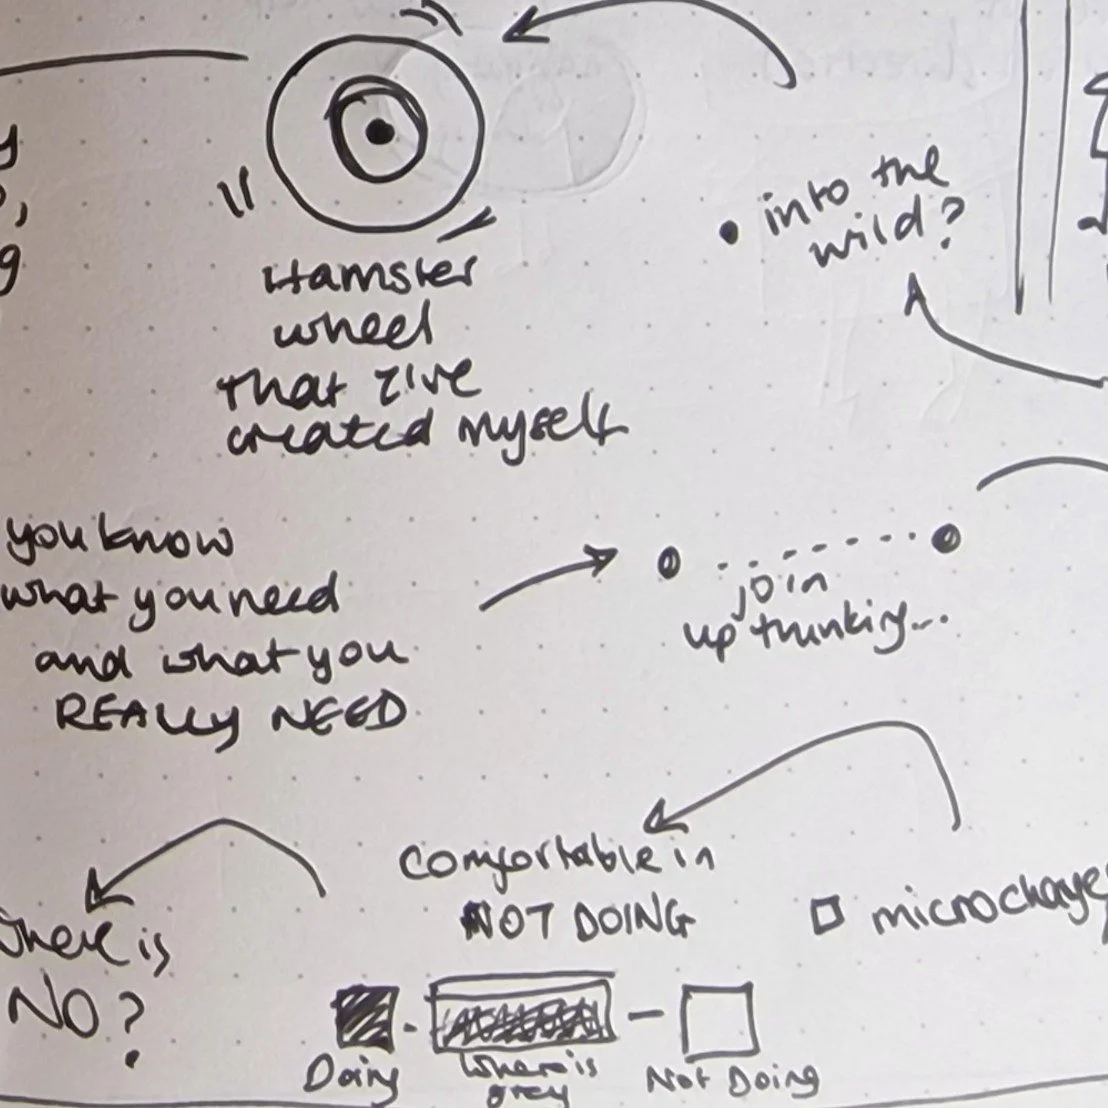 into the
wild?
Hamster
wheel
that I've
created myself
you know
what you need
and what you
REALLY NEED
join
up thinking...
Comfortable in
NOT DOING
microchange
where is
NO?
Doing
where is
grey
Not Doing